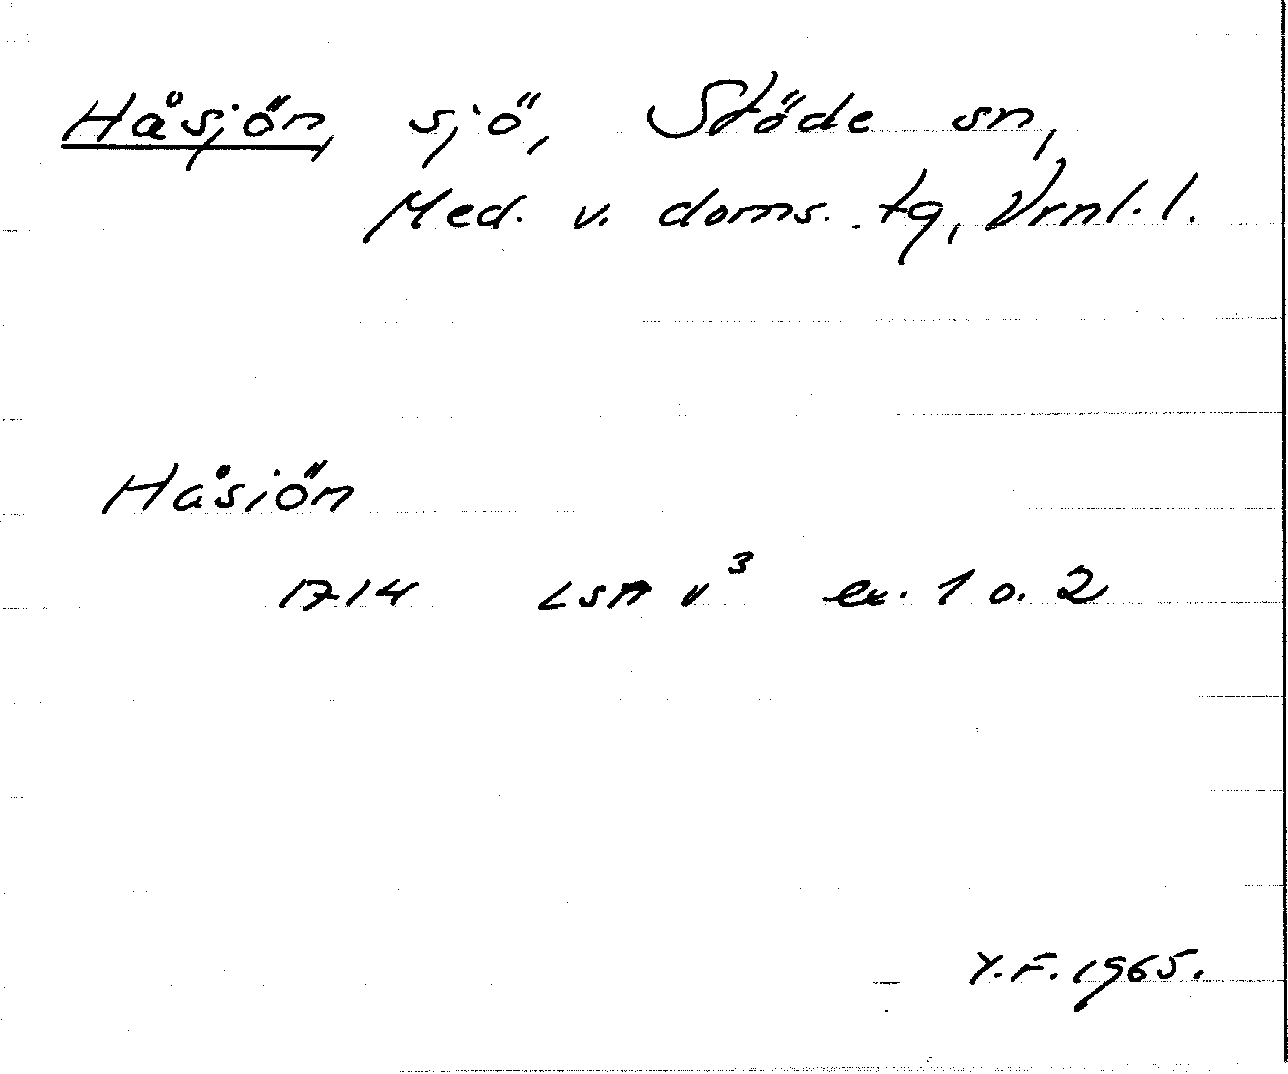 Håsjön, sjö, Stöde sn,
Med. v. doms. tg, Vrnl. l.
Håsiön
1714 LSA v³ ex. 1 o. 2
Y.F. 1965.